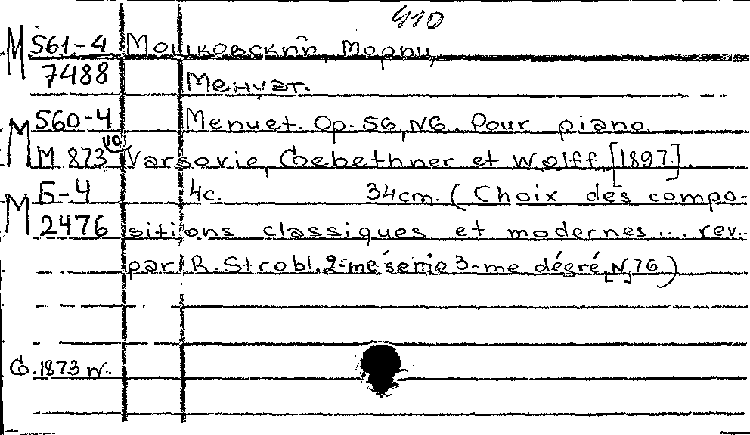 410
М 561-4 Мошковский, Мориц
7488 Менуэт.
М 560-4 Menuet. Op. 56, N6. Pour piano.
М 873 Varsovie, Gebethner et Wolff, [1897].
М Б-4 4с. 34cm. (Choix des compo-
2476 sitions classiques et modernes... rev.
par R. Strobl. 2-me serie 3-me dégré, N, 76)
G.1873 W.